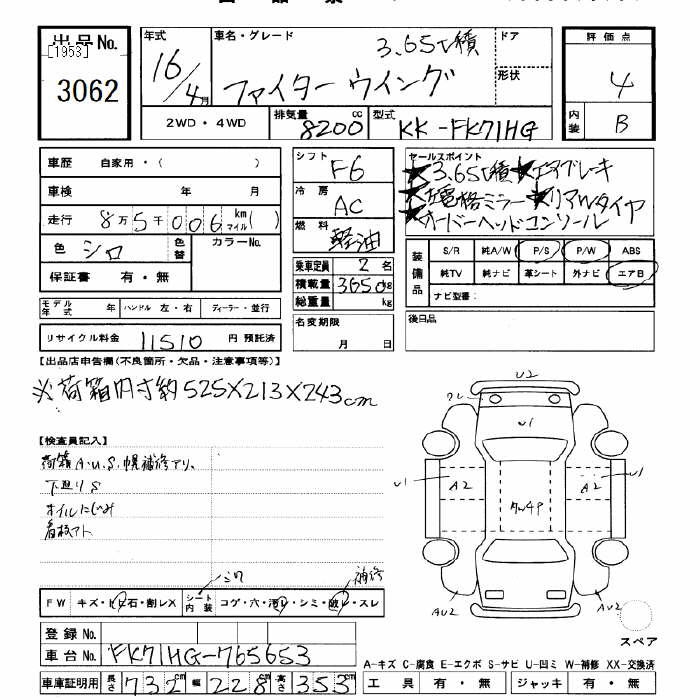 出品No.
[1953]
3062
年式
16/4月
車名・グレード
3.65t積
ファイター ウイング
ドア
形状
評価点
4
内装
B
2WD・4WD
排気量
8200cc
型式
KK-FK71HG
車歴 自家用・( )
車検 年 月
走行 8万5千006km マイル( )
色 シロ 色替 カラーNo.
保証書 有・無
モデル年式 年 ハンドル 左・右 ディーラー・並行
リサイクル料金 11510円 預託済
シフト
F6
冷房
AC
燃料
軽油
乗車定員 2名
積載量 3650kg
総重量 kg
名変期限
月 日
セールスポイント
★3.65t積★エアブレーキ
★左電格ミラー★リアルタイヤ
★オーバーヘッドコンソール
装備品
S/R 純A/W P/S P/W ABS
純TV 純ナビ 革シート 外ナビ エアB
ナビ型番:
後日品
【出品店申告欄(不良箇所・欠品・注意事項等)】
※荷箱内寸約525×213×243cm
【検査員記入】
荷箱A.U.S.幌補修アリ、
下廻りS
オイルにじみ
看板アト
U2
U1
U1
A2
A2
U1
AU2
AU2
スペア
シワ
補修
FW キズ・ヒビ石・割レX
シート内装 コゲ・穴・汚レ・シミ・破レ・スレ
登録No.
車台No. FK71HG-765653
車庫証明用 長さ732cm 幅228cm 高さ353cm
A-キズ C-腐食 E-エクボ S-サビ U-凹ミ W-補修 XX-交換済
工具 有・無 ジャッキ 有・無